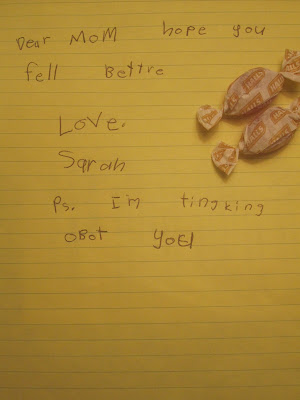 Dear MoM hope you
fell Bettre
Love.
Sarah
Ps. I'm tingking
obot yoEl
HALLS
HALLS